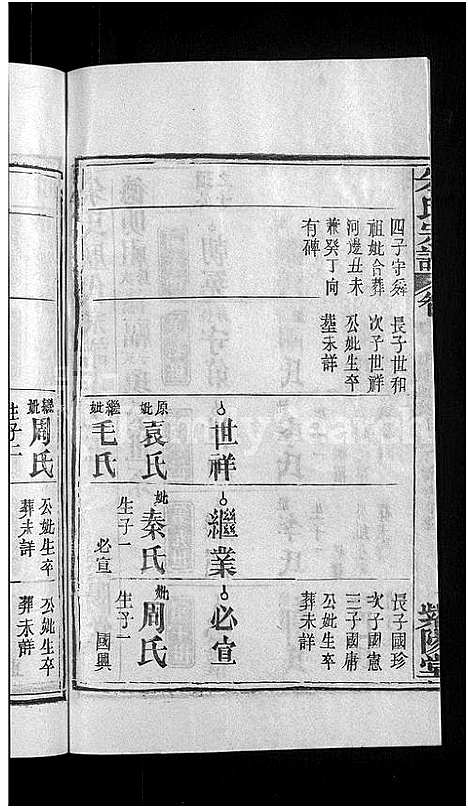 朱氏宗譜 卷
紫陽堂
四子守舜
祖妣合葬
河邊丑未
兼癸丁向
有碑
長子世和
次子世祥
公妣生卒
塟未詳
世祥
原妣袁氏
繼妣毛氏
繼業
妣秦氏
生子一
必宣
長子國珍
次子國憲
三子國庸
公妣生卒
葬未詳
必宣
妣周氏
生子一
國興
繼妣周氏
生子二
公妣生卒
葬未詳
公妣生卒
葬未詳